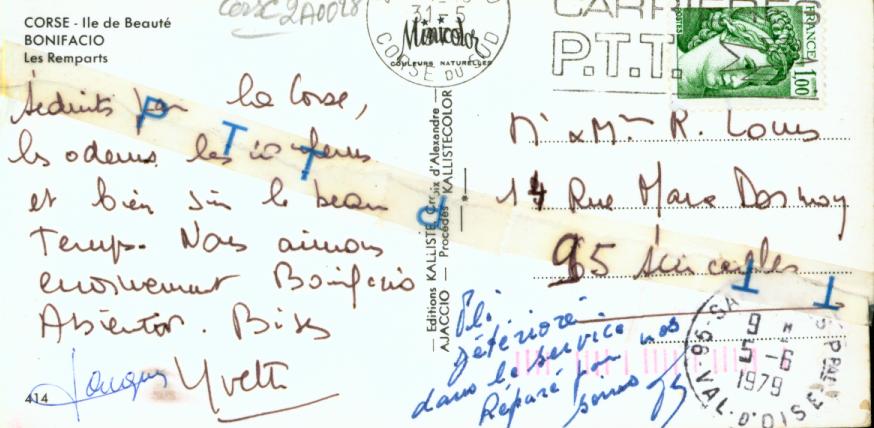 CORSE - Ile de Beauté
BONIFACIO
Les Remparts
CORSE 2A0028
31-5
Minicolor
COULEURS NATURELLES
CORSE DU SUD
CARRIÈRES
P.T.T.
POSTES
FRANCE
1,00
Séduits par la Corse,
les odeurs, les
et bien sûr le beau
temps. Nous aimons
énormément Bonifacio
A bientôt. Bises
Jacques Yvette
414
P T T
P T T
Editions KALLISTE, Croix d'Alexandre
AJACCIO — Procédés KALLISTECOLOR
Mr & Mme R. Louis
14 Rue Marx Dormoy
95 Sarcelles
Pli
détérioré
dans le service
Réparé par nos
soins
95-SA
9 H
5-6
1979
VAL-D'OISE